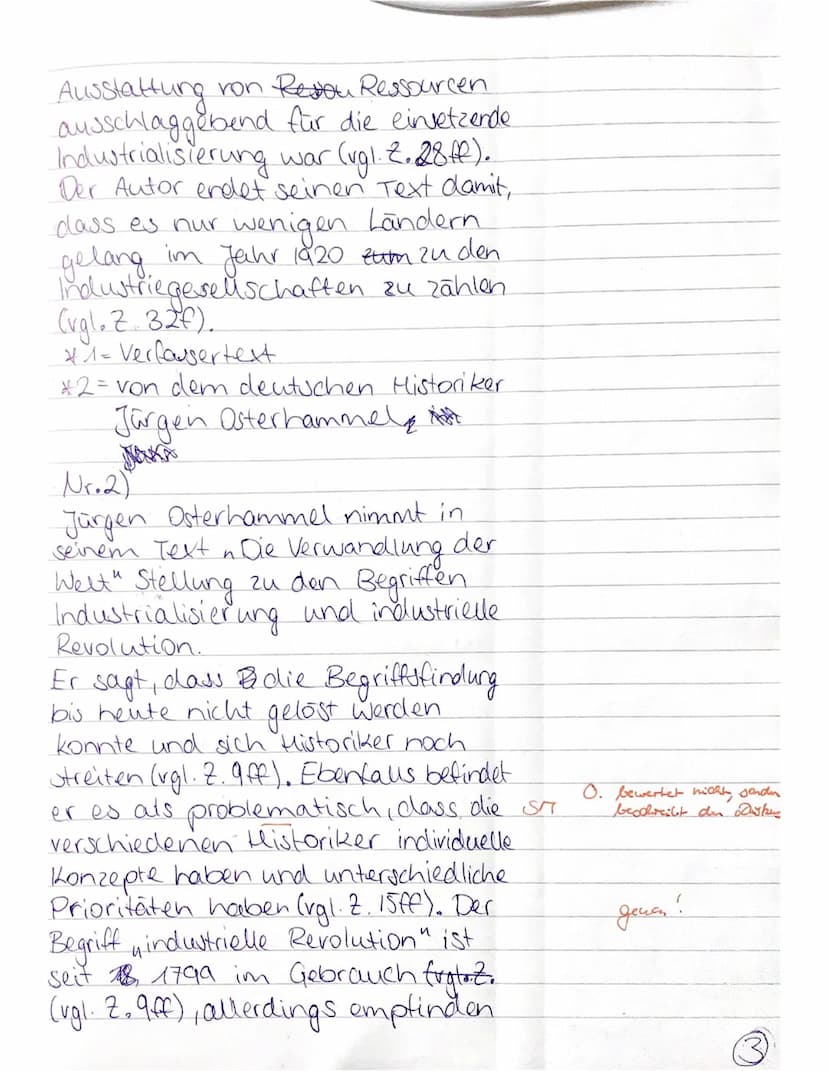 Ausstattung von Resou Ressourcen
ausschlaggebend für die einsetzende
Industrialisierung war (vgl. Z. 28ff).
Der Autor endet seinen Text damit,
dass es nur wenigen Ländern
gelang im Jahr 1920 zum zu den
Industriegesellschaften zu zählen
(vgl. Z. 32f).
*1= Verfassertext
*2= von dem deutschen Historiker
Jürgen Osterhammel
Nr.2)
Jürgen Osterhammel nimmt in
seinem Text „Die Verwandlung der
Welt" Stellung zu den Begriffen
Industrialisierung und industrielle
Revolution.
Er sagt, dass die Begriffsfindung
bis heute nicht gelöst werden
konnte und sich Historiker noch
streiten (vgl. Z. 9ff). Ebenfalls befindet
er es als problematisch, dass die
O. bewertet nicht, sondern
beschreibt den
verschiedenen Historiker individuelle
Konzepte haben und unterschiedliche
Prioritäten haben (vgl. Z. 15ff). Der
genau!
Begriff „industrielle Revolution" ist
seit 1799 im Gebrauch (vgl. Z.
(vgl. Z. 9ff), allerdings empfinden
3